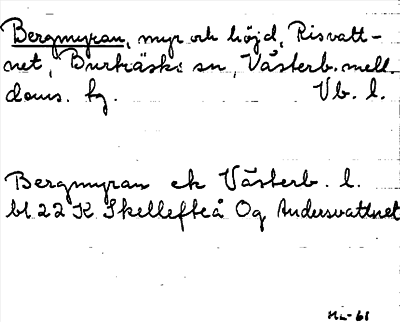 Bergmyran, myr och höjd, Risvatt-
net, Burträsks sn, Västerb. mell.
doms. fg. Vb. l.
Bergmyran ek Västerb. l.
bl 22 K Skellefteå Og Andersvattnet
HL-61